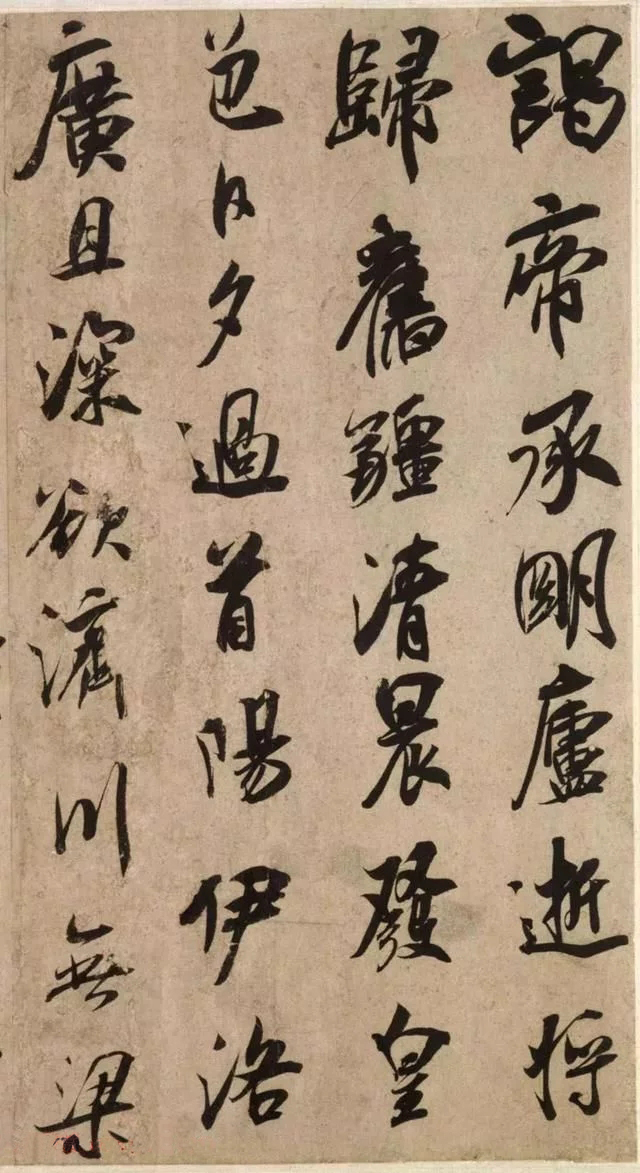 謁帝承明廬逝將
歸舊疆清晨發皇
邑日夕過首陽伊洛
廣且深欲濟川無梁